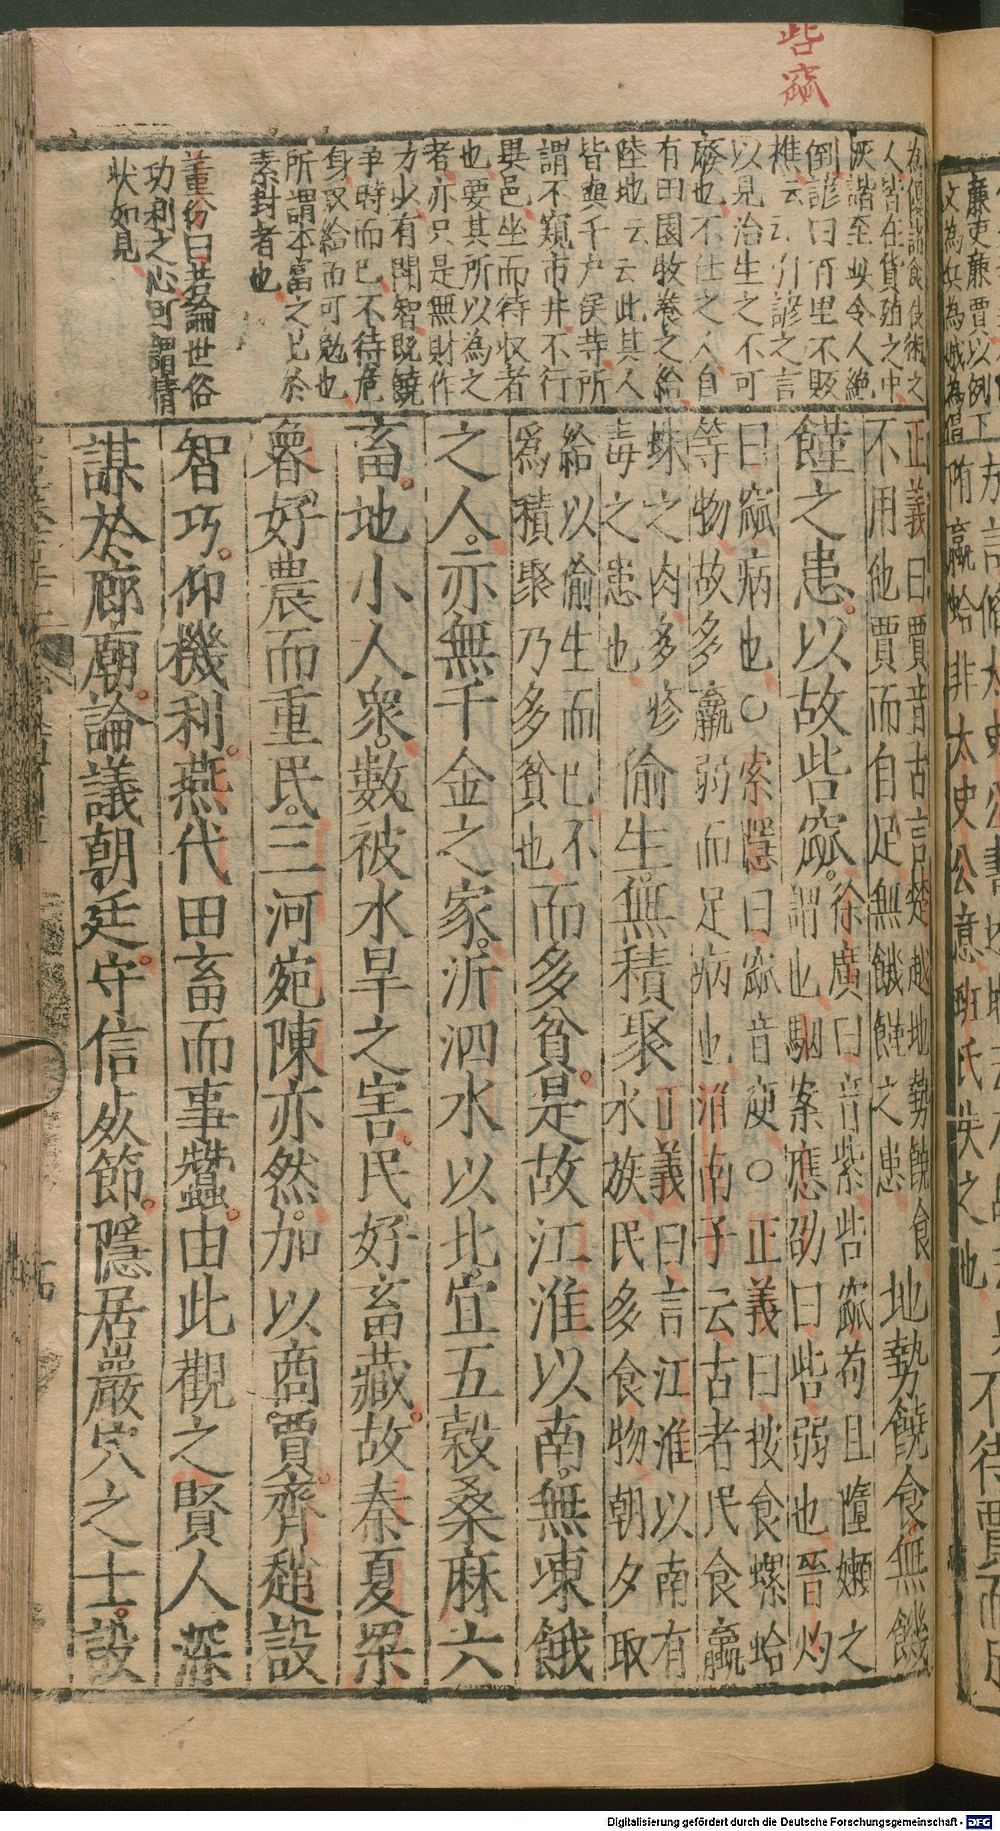 呰窳
廉吏廉賈以例下
文為兵為賊為倡
羸蛤非太史公意班氏失之也
不待賈而足
人皆在貨殖之中
詼諧至此令人絶
倒諺曰百里不販
樵云云引諺之言
以見治生之不可
廢也不仕之人自
有田園牧養之給
陸地云云此其人
皆與千户侯等所
謂不窺市井不行
異邑坐而待収者
也要其所以為之
者亦只是無財作
力少有鬪智既饒
争時而已不待危
身取給而可勉也
所謂本富之上於
素封者也
董份曰若論世俗
功利之心可謂情
狀如見
正義曰賈音古言楚越地勢饒食
不用他賈而自足無饑饉之患
地勢饒食無饑
饉之患。以故呰窳。
徐廣曰音紫呰窳苟且墮嬾之
謂也駰案應劭曰呰弱也晉灼
曰窳病也○索隱曰窳音庾○正義曰按食螺蛤
等物故多羸弱而足病也淮南子云古者民食蠃
蛖之肉多疹
毒之患也
偷生。無積聚
正義曰言江淮以南有
水族民多食物朝夕取
給以偷生而已不
爲積聚乃多貧也
而多貧。是故江淮以南。無凍餓
之人。亦無千金之家。沂泗水以北。宜五穀桑麻六
畜。地小人衆。數被水旱之害。民好畜藏。故秦夏梁
魯好農而重民。三河宛陳亦然。加以商賈。齊趙設
智巧。仰機利。燕代田畜而事蠶。由此觀之。賢人深
謀於廊廟。論議朝廷。守信死節。隱居巖穴之士。設
Digitalisierung gefördert durch die Deutsche Forschungsgemeinschaft - DFG